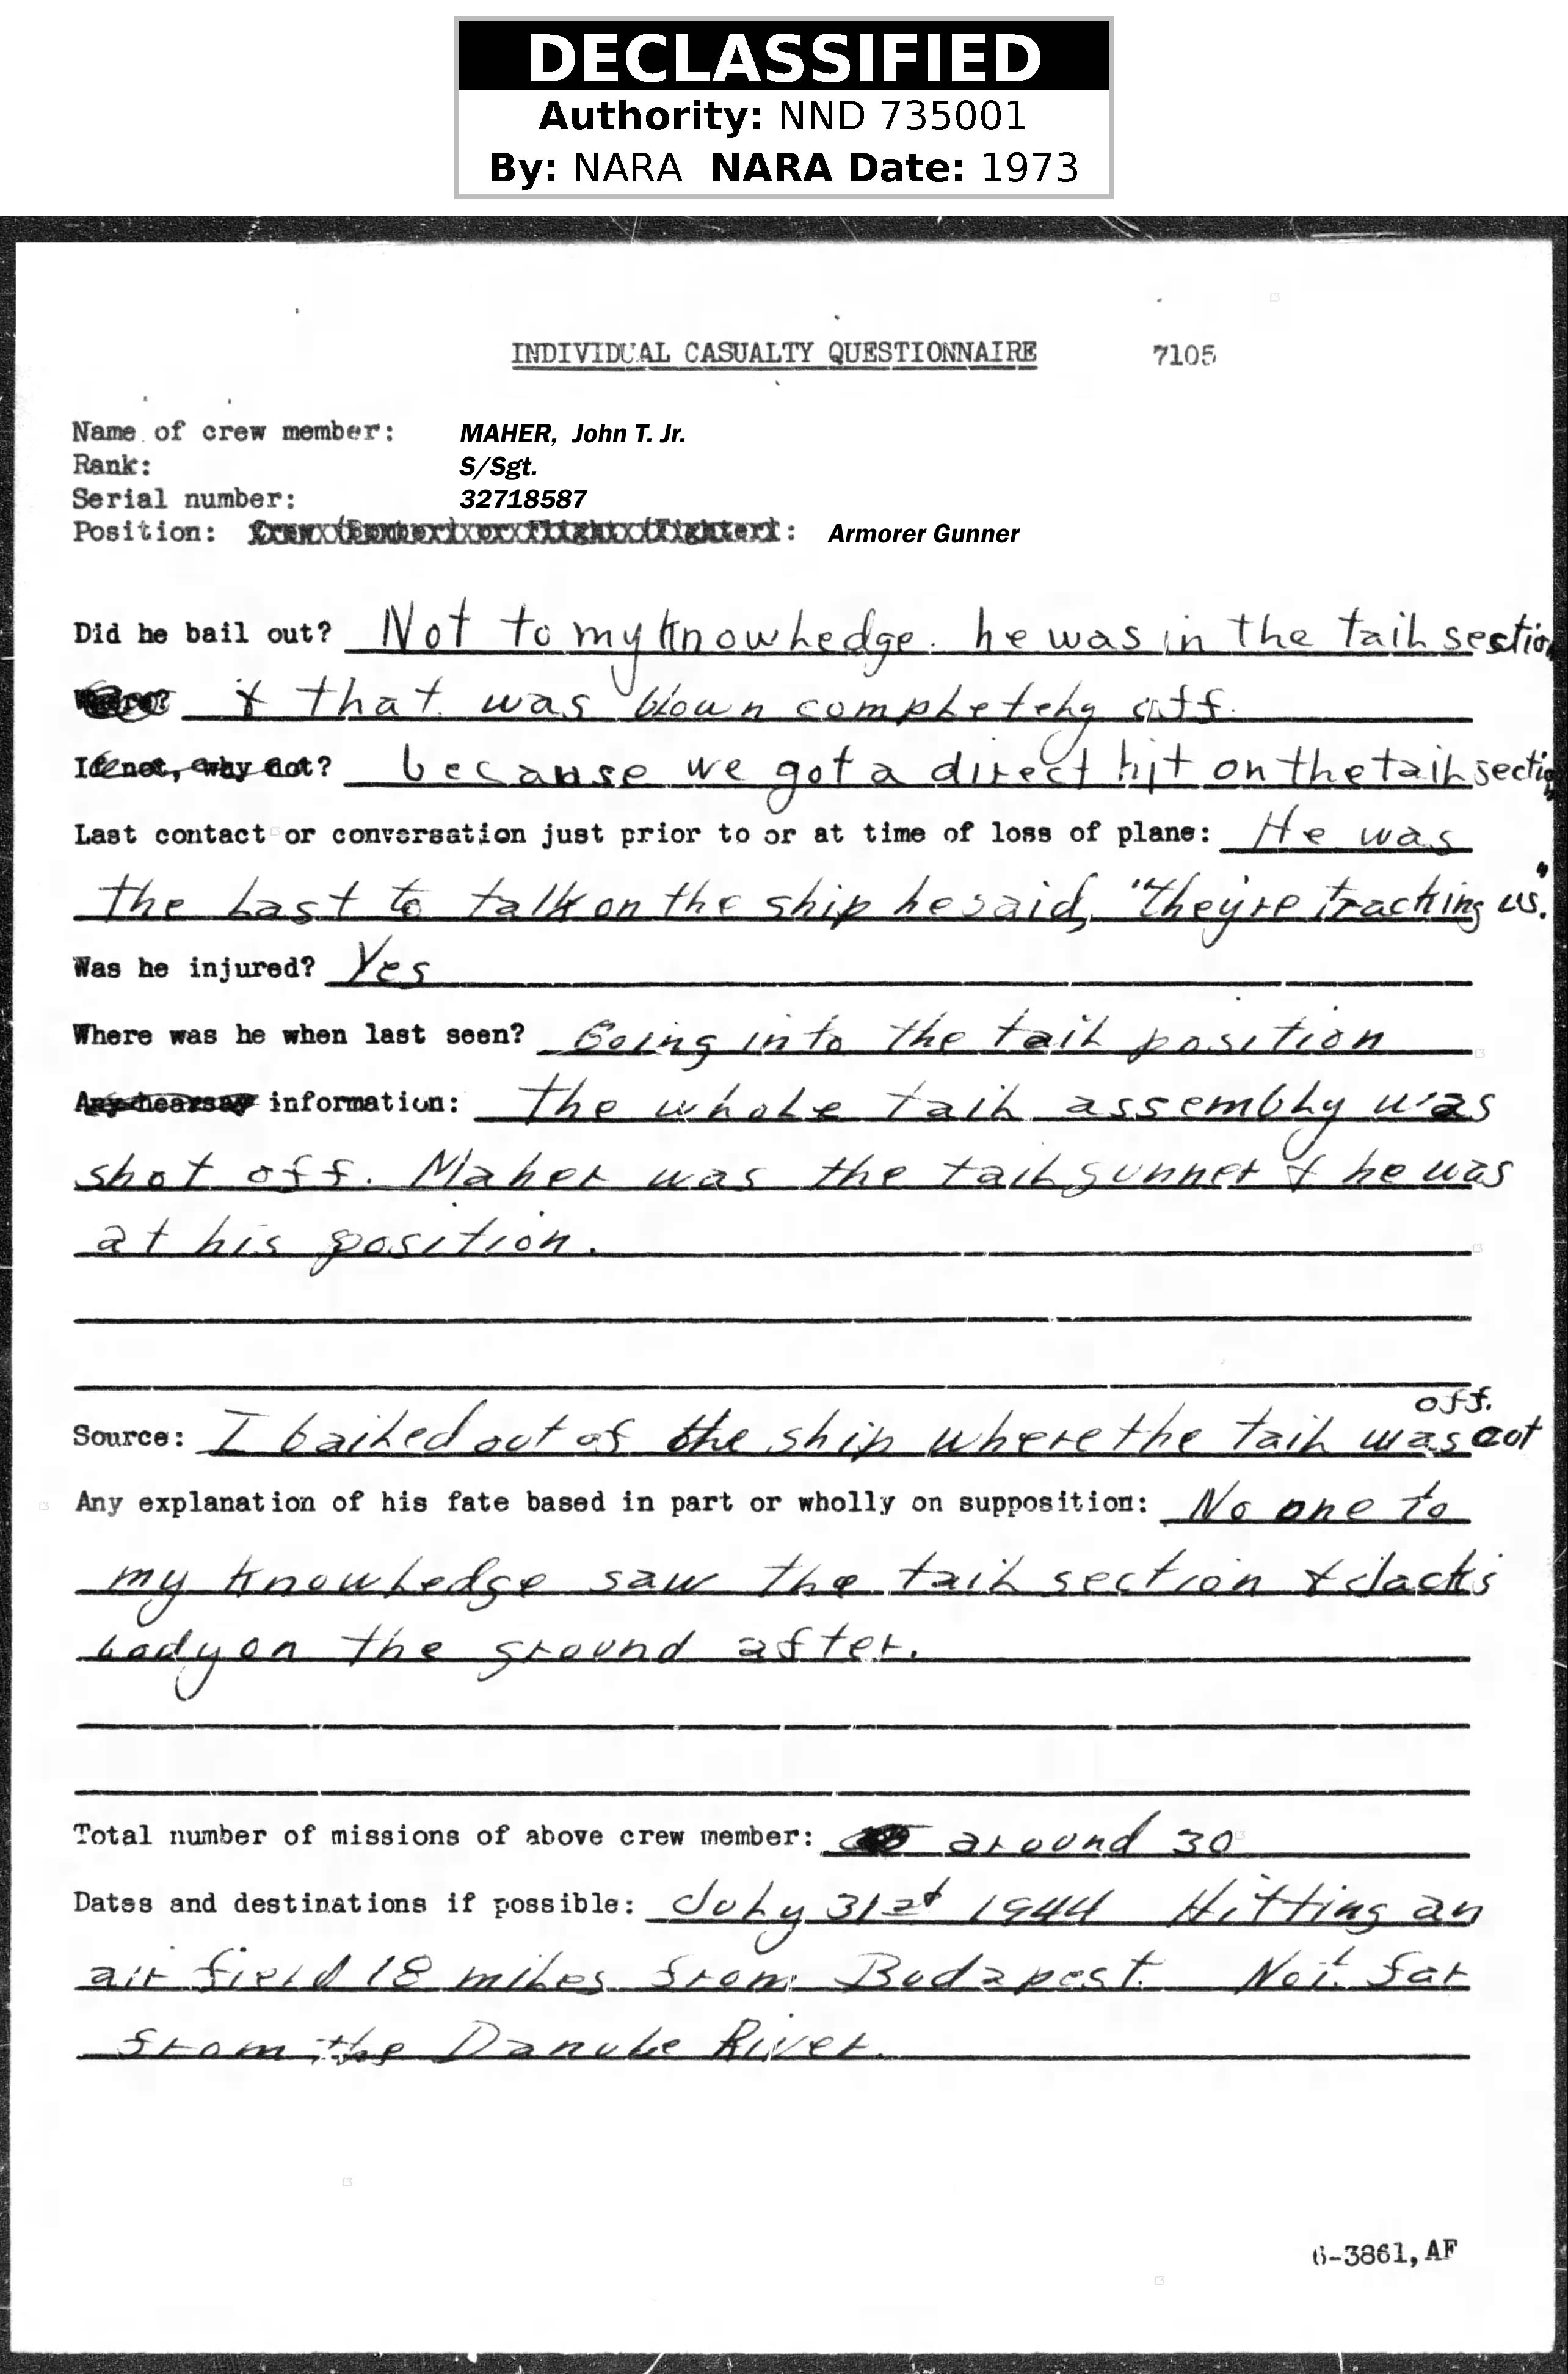 DECLASSIFIED
Authority: NND 735001
By: NARA NARA Date: 1973
INDIVIDUAL CASUALTY QUESTIONNAIRE 7105
Name of crew member: MAHER, John T. Jr.
Rank: S/Sgt.
Serial number: 32718587
Position: Crew (Bomber) or Flight (Fighter): Armorer Gunner
Did he bail out? Not to my knowledge. he was in the tail section
Where? & that was blown completely off.
If not, why not? because we got a direct hit on the tail section
Last contact or conversation just prior to or at time of loss of plane: He was
the last to talk on the ship he said, "they're tracking us."
Was he injured? Yes
Where was he when last seen? Going into the tail position
Any hearsay information: The whole tail assembly was
shot off. Maher was the tail gunner & he was
at his position.
off.
Source: I bailed out of the ship where the tail was cut
Any explanation of his fate based in part or wholly on supposition: No one to
my knowledge saw the tail section & Jacks
body on the ground after.
Total number of missions of above crew member: around 30
Dates and destinations if possible: July 31st 1944 Hitting an
air field 18 miles from Budapest. Not far
from the Danube River.
6-3861, AF